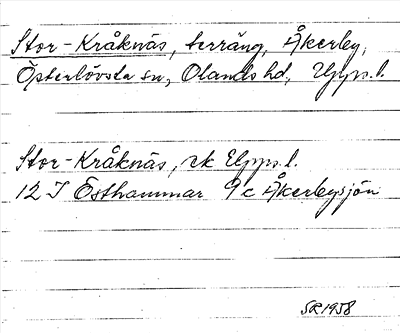 Stor-Kråknäs, terräng, Åkerby,
Österlövsta sn, Olands hd, Upps.l.
Stor-Kråknäs, ek Upps.l.
12 I Östhammar 9 c Åkerbysjön
SR 1958